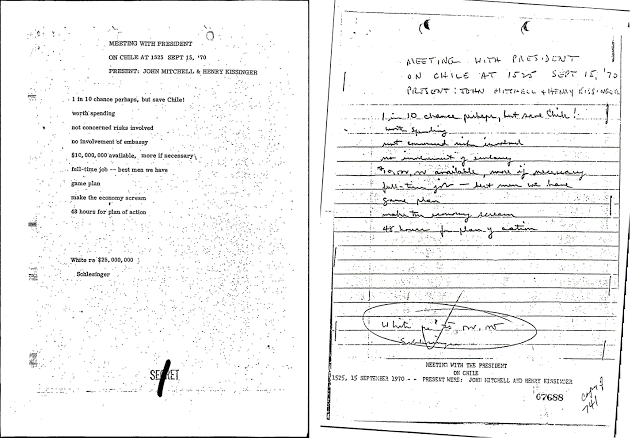 MEETING WITH PRESIDENT
ON CHILE AT 1525 SEPT 15, '70
PRESENT: JOHN MITCHELL & HENRY KISSINGER
1 in 10 chance perhaps, but save Chile!
worth spending
not concerned risks involved
no involvement of embassy
$10,000,000 available, more if necessary
full-time job -- best men we have
game plan
make the economy scream
48 hours for plan of action
White re $25,000,000
Schlesinger
SECRET
MEETING WITH PRESIDENT
ON CHILE AT 1525 SEPT 15, '70
PRESENT: JOHN MITCHELL & HENRY KISSINGER
1 in 10 chance perhaps, but save Chile!
worth spending
not concerned risks involved
no involvement of embassy
$10,000,000 available, more if necessary
full-time job — best men we have
game plan
make the economy scream
48 hours for plan of action
White
MEETING WITH THE PRESIDENT
ON CHILE
1525, 15 SEPTEMBER 1970 -- PRESENT WERE: JOHN MITCHELL AND HENRY KISSINGER
07688